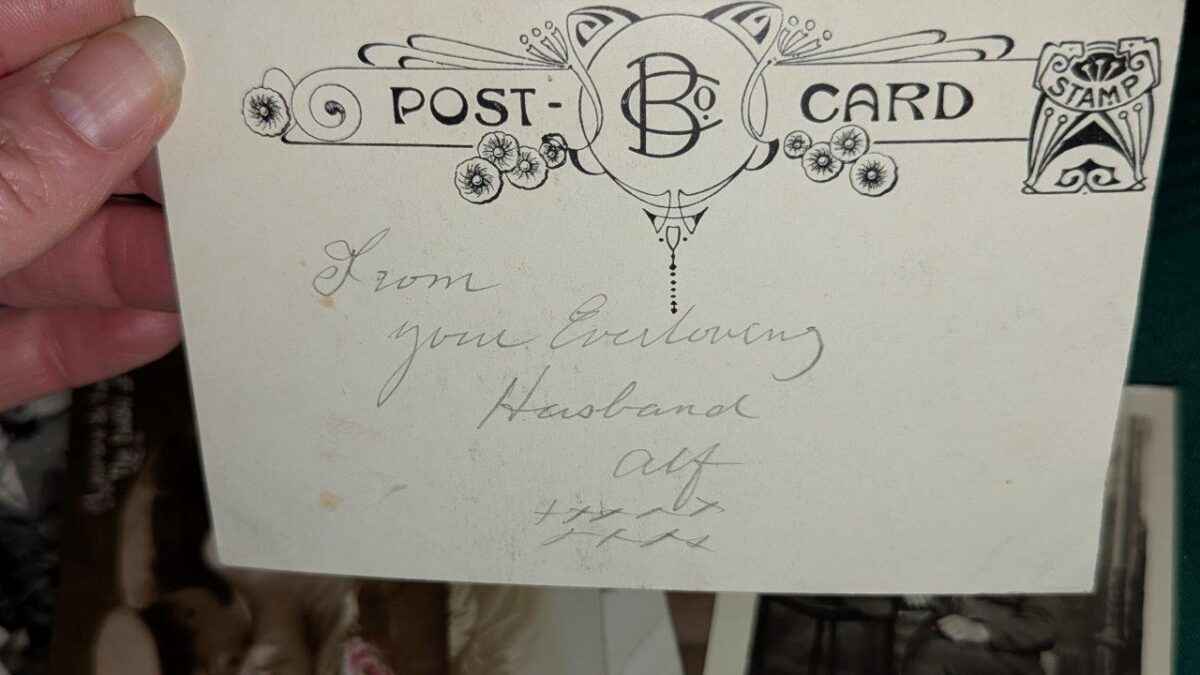 POST- BCo. CARD
STAMP
From
your Everloving
Husband
Alf
+xxxx
xxxxx